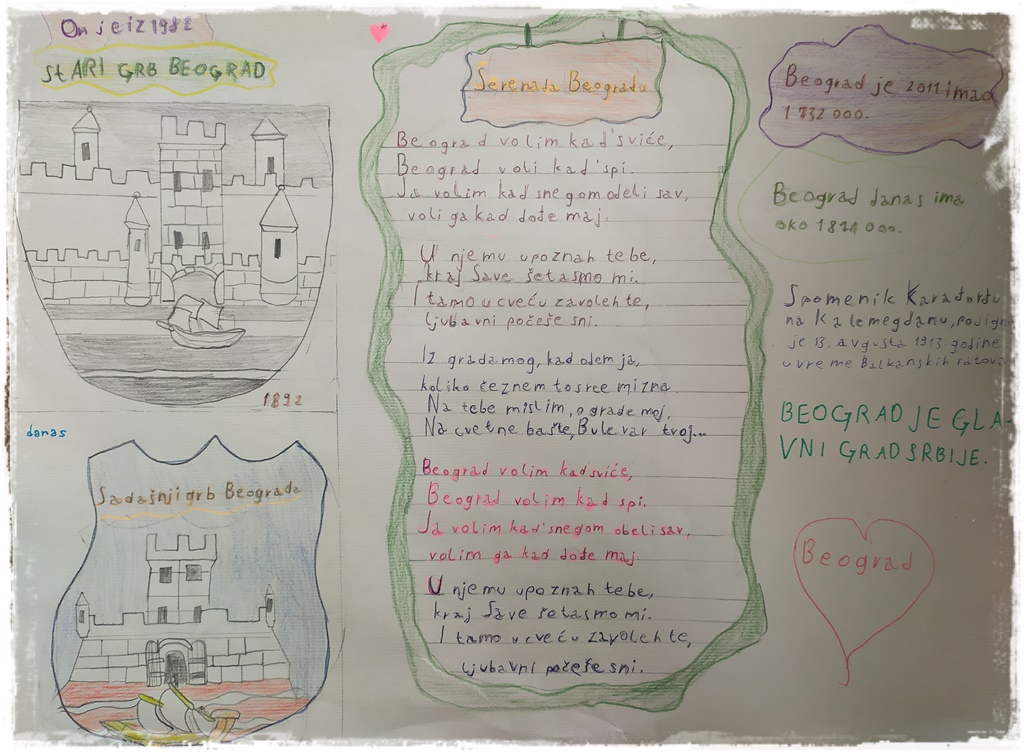 On je iz 1982
stARI GRB BEOGRAD
1892
danas
Sadašnji grb Beograda
Serenada Beogradu
Beograd volim kad'sviće,
Beograd voli kad'spi.
Ja volim kad snegom odeli sav,
voli ga kad dođe maj.
U njemu upoznah tebe,
kraj Save šetasmo mi.
I tamo u cveću zavoleh te,
ljubavni počeše sni.
Iz grada mog, kad odem ja,
koliko čeznem to srce mi zna.
Na tebe mislim, o grade moj,
Na cvetne bašte, Bulevar tvoj...
Beograd volim kad sviće,
Beograd volim kad spi.
Ja volim kad'snegom obeli sav,
volim ga kad dođe maj.
U njemu upoznah tebe,
kraj Save šetasmo mi.
I tamo u cveću zavoleh te,
ljubavni počeše sni.
Beograd je 2011 imao
1 732 000.
Beograd danas ima
oko
Spomenik Karađorđu
na Kalemegdanu,
je 13. avgusta 1913. godine
u vreme Balkanskih ratova
BEOGRAD JE GLA-
VNI GRAD SRBIJE.
Beograd